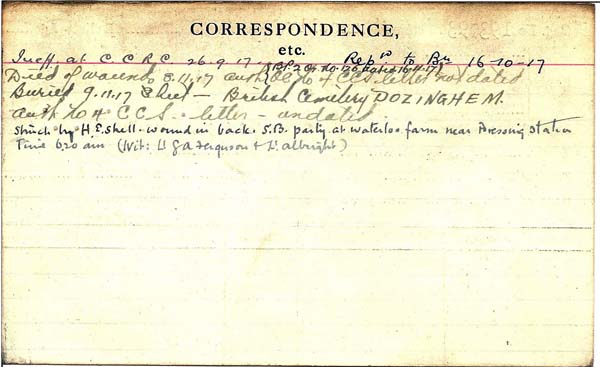 CORRESPONDENCE,
etc.
at C.C.R.C. 26.9.17 Rep'd to Bn 16-10-17
No. 176 dated 16.11.17
Died of wounds 8.11.17 auth CCS. letter not dated
Buried 9.11.17 Sheet - British Cemetery DOZINGHEM.
auth No 4 C C S. - letter - undated
Struck by H.E. shell. wound in back. S.B. party at Waterloo farm near Dressing Station
Time 6.20 am (Wit: Lt G A Ferguson + Lt. Albright)